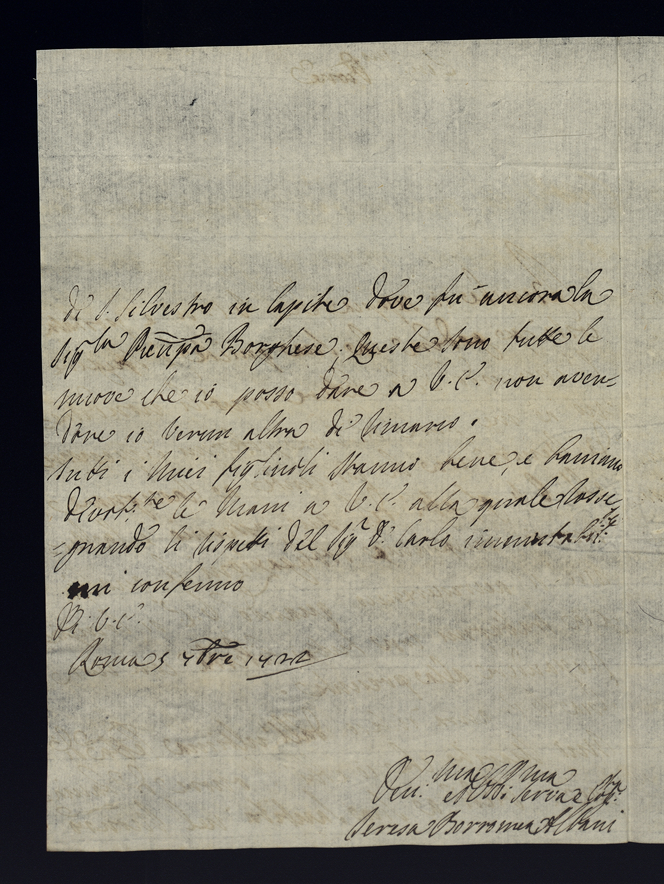 di S. Silvestro in Capite dove fu ancora la
Sig.ra Pnēpa Borghese. Queste sono tutte le
nuove che io posso dare a V. E. non aven=
done io verun altra di rimarco.
Tutti i miei figlinoli stanno bene, e baciano
devot.te le Mani a V. E. alla quale
=gnando li rispetti del Sig.r D. Carlo
mi confermo
Di V. E.
Roma 5 7bre 1722
Dev.ma
et Serva e
Teresa Borromea Albani